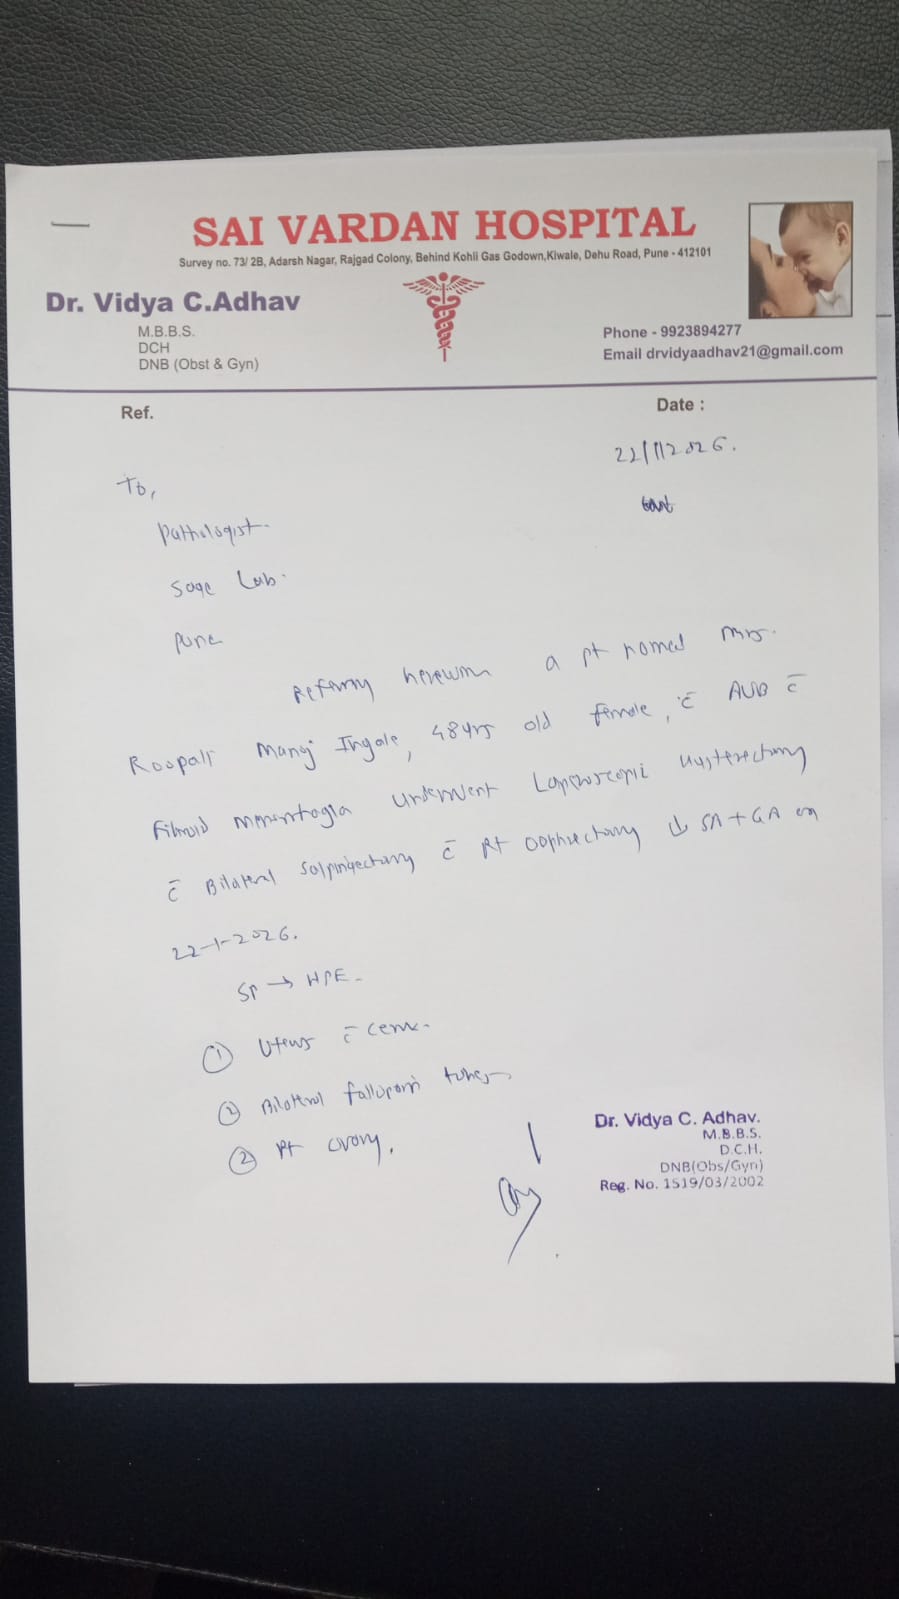 SAI VARDAN HOSPITAL
Survey no. 73/ 2B, Adarsh Nagar, Rajgad Colony, Behind Kohli Gas Godown,Kiwale, Dehu Road, Pune - 412101
Dr. Vidya C.Adhav
M.B.B.S.
DCH
DNB (Obst & Gyn)
Phone - 9923894277
Email drvidyaadhav21@gmail.com
Ref.
Date :
22/1/2026.
To,
Pathologist.
Sage Lab.
Pune
a pt named Mrs.
Roopali Manoj Ingole, 48yrs old female, c̄ AUB c̄
Fibroid underwent
c̄ Bilateral c̄ Rt ↓ SA + GA on
22-1-2026.
→ HPE -
① c̄
② Bilateral
② Rt ovary.
Dr. Vidya C. Adhav.
M.B.B.S.
D.C.H.
DNB(Obs/Gyn)
Reg. No. 1519/03/2002